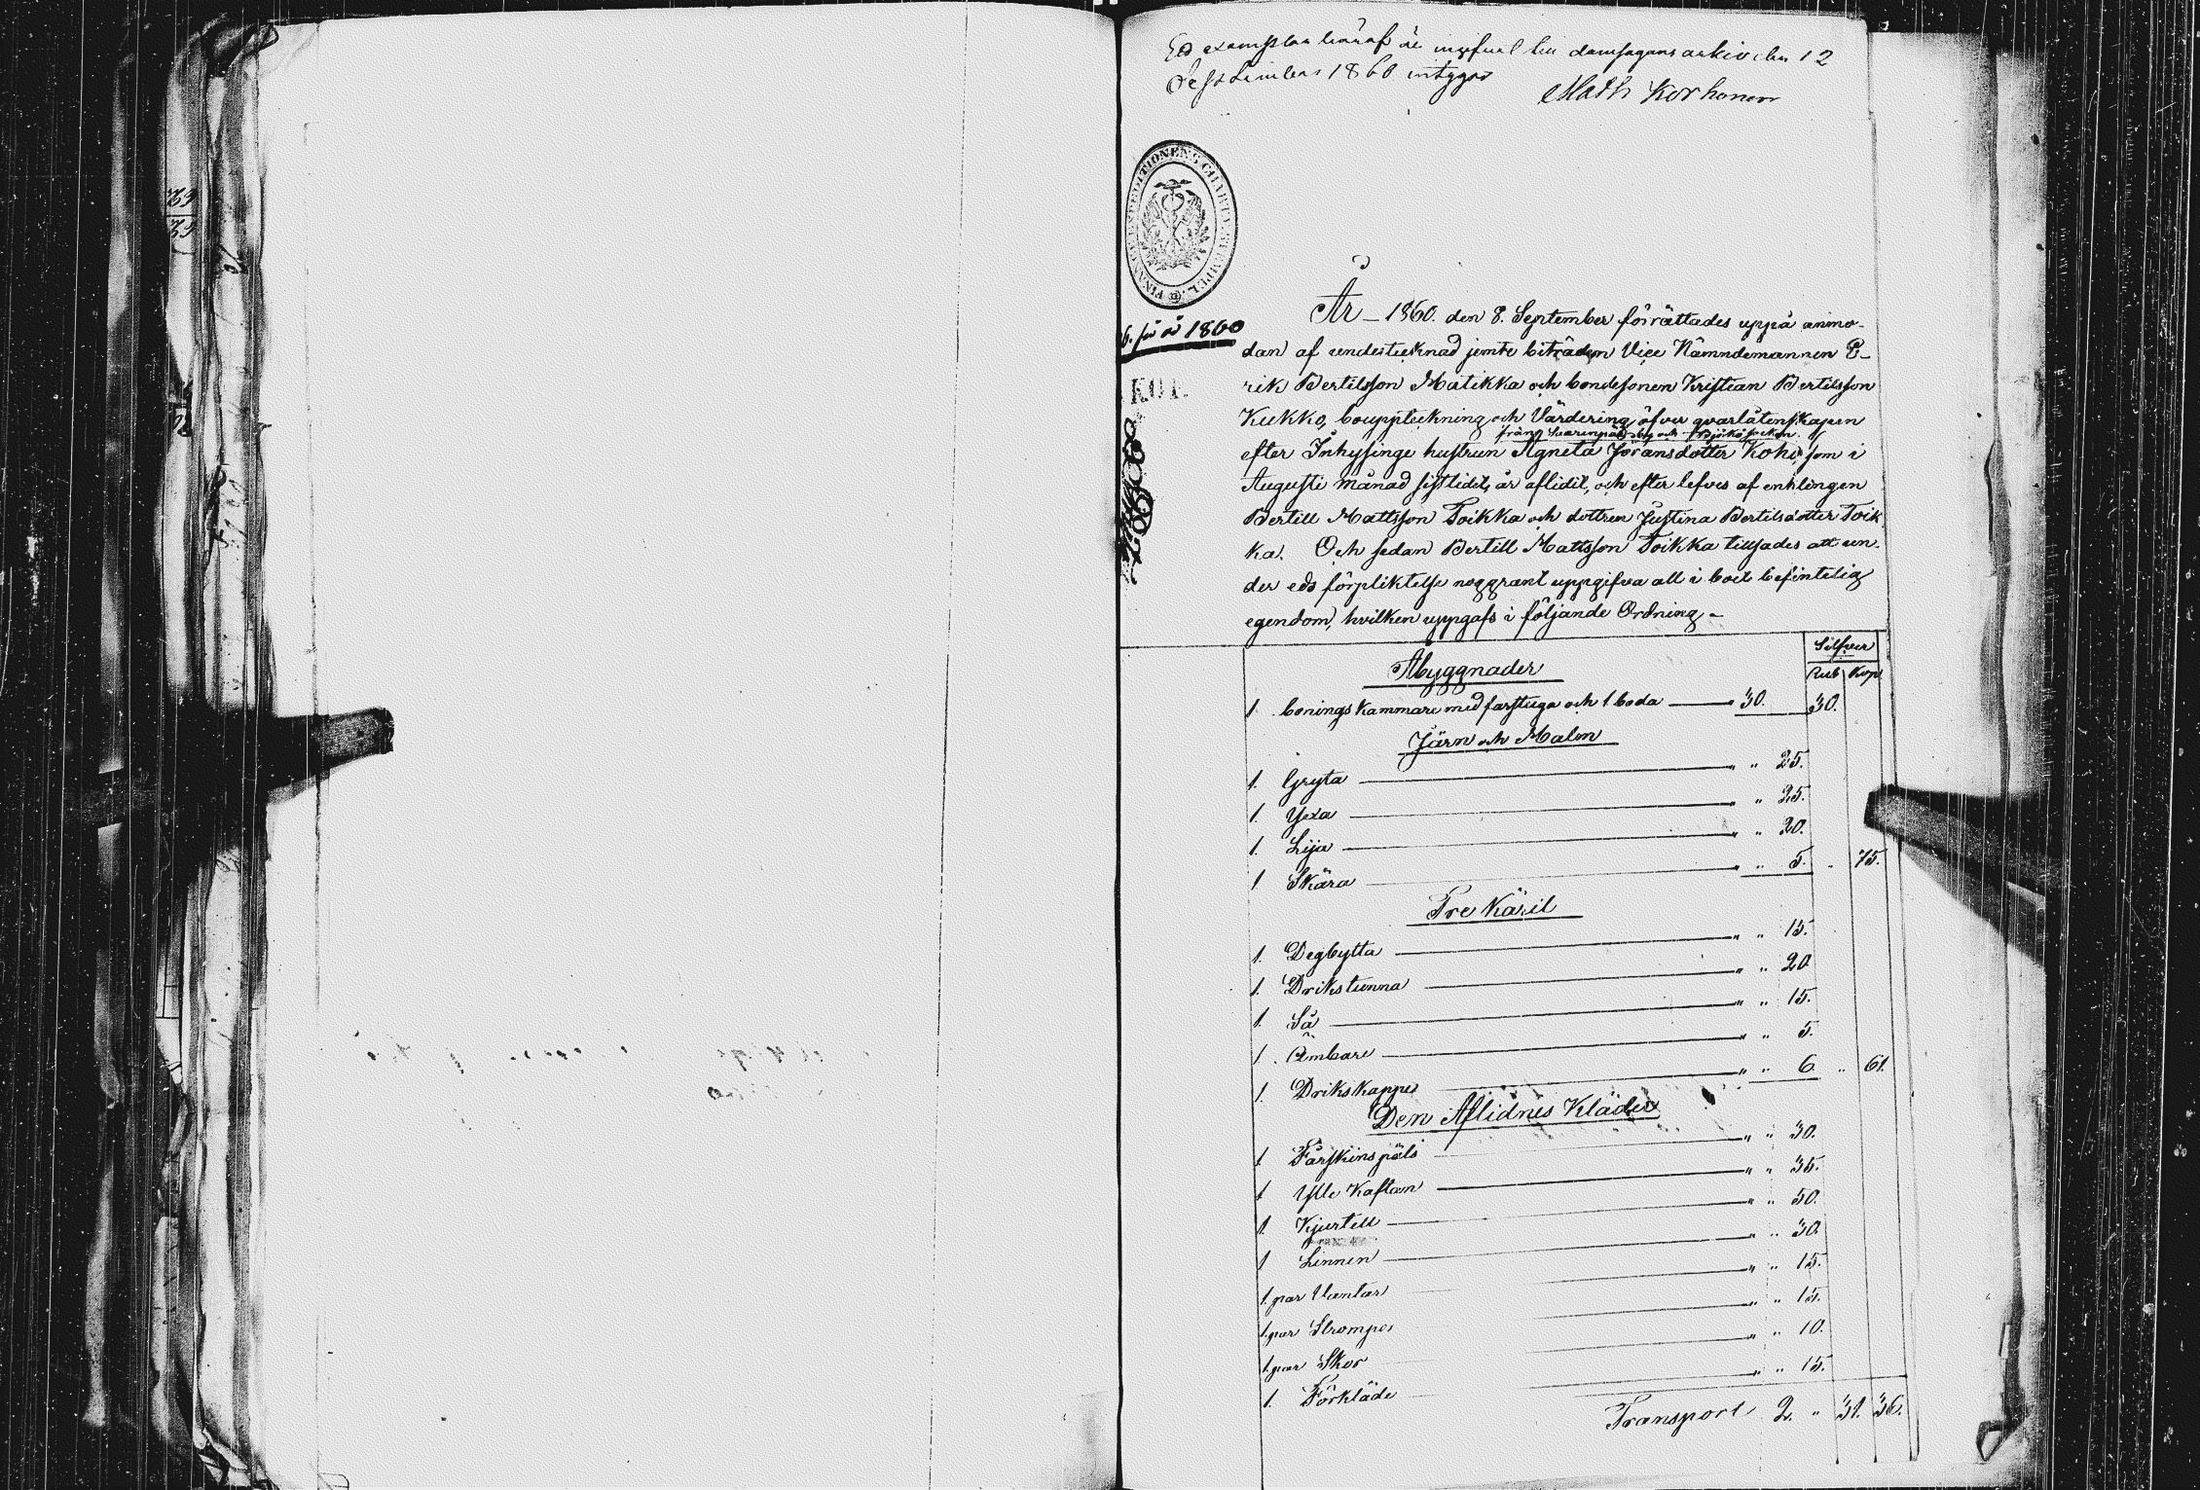 Ed exemplar häraf är ingifvet till domsagans arkiv den 12
September 1860 intygar
Math Korhonen
FINANCE EXPEDITIONENS CHARTÆ STEMPEL.
för år 1860
KOP.
År 1860. den 8. September förrättades uppå anmo-
dan af undertecknad jemte biträden Vice Nämndemannen E-
rik Bertilsson Matikka och bondesonen Kristian Bertilsson
Kukko, bouppteckning och Värdering öfver qvarlåtenskapen
från by och Björkö socken.
efter Inhysinge hustrun Agneta Jöransdotter Kohi som i
Augusti månad sistlidet, är aflidit, och efter lefves af enklingen
Bertill Mattsson Toikka och dottren Justina Bertilsdotter Toik
ka. Och sedan Bertill Mattsson Toikka tillsades att un-
der eds förpliktelse noggrant uppgifva all i boet befintelig
egendom, hvilken uppgafs i följande Ordning –
Silfver
Åbyggnader
Rub Kop
1. bonings Kammare med farstuga och 1 boda — 30. 30.
Järn och Malm
1. Gryta — " " 25.
1. Yxa — " " 25.
1. Lija — " " 20.
1. Skära — " " 5. " 75.
Tre Käril
1. Degbytta — " " 15.
1. Drikstunna — " " 20
1. Så — " " 15.
1. Ämbare — " " 5.
1. Drikskappa — " " 6 " 61.
Den Aflidnes Kläder
1 Fårskins päls — " " 30.
1 Ylle Kaftan — " " 35.
1. Kjurtell — " " 50.
1 Linnen — " " 30.
1. par Vantar — " " 15.
1. par Strompor — " " 15.
1. par Skor — " " 10.
1. Förkläde — " " 15.
Transport 2. " 31. 36.